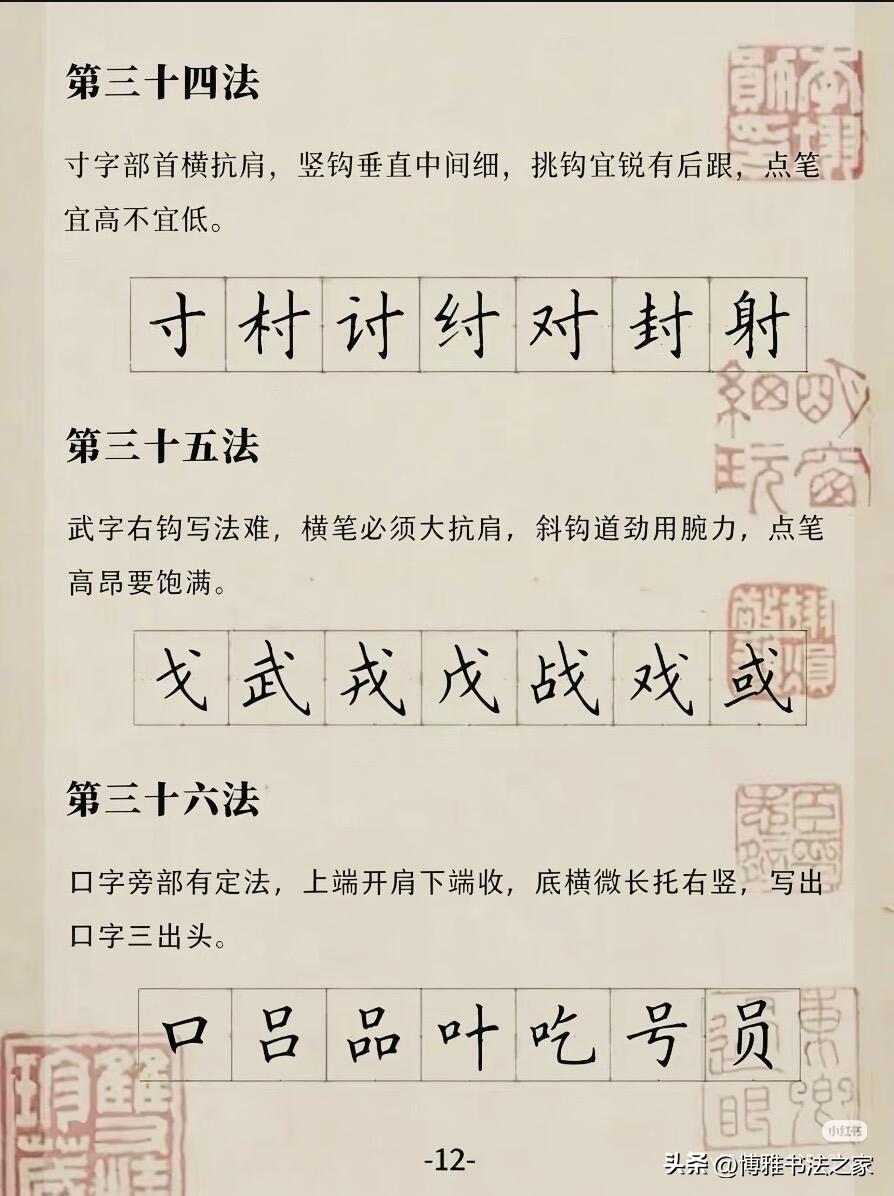 第三十四法
寸字部首横抗肩，竖钩垂直中间细，挑钩宜锐有后跟，点笔
宜高不宜低。
寸村讨纣对封射
第三十五法
武字右钩写法难，横笔必须大抗肩，斜钩道劲用腕力，点笔
高昂要饱满。
戈武戎戊战戏或
第三十六法
口字旁部有定法，上端开肩下端收，底横微长托右竖，写出
口字三出头。
口吕品叶吃号员
-12-
小红书
头条 @博雅书法之家